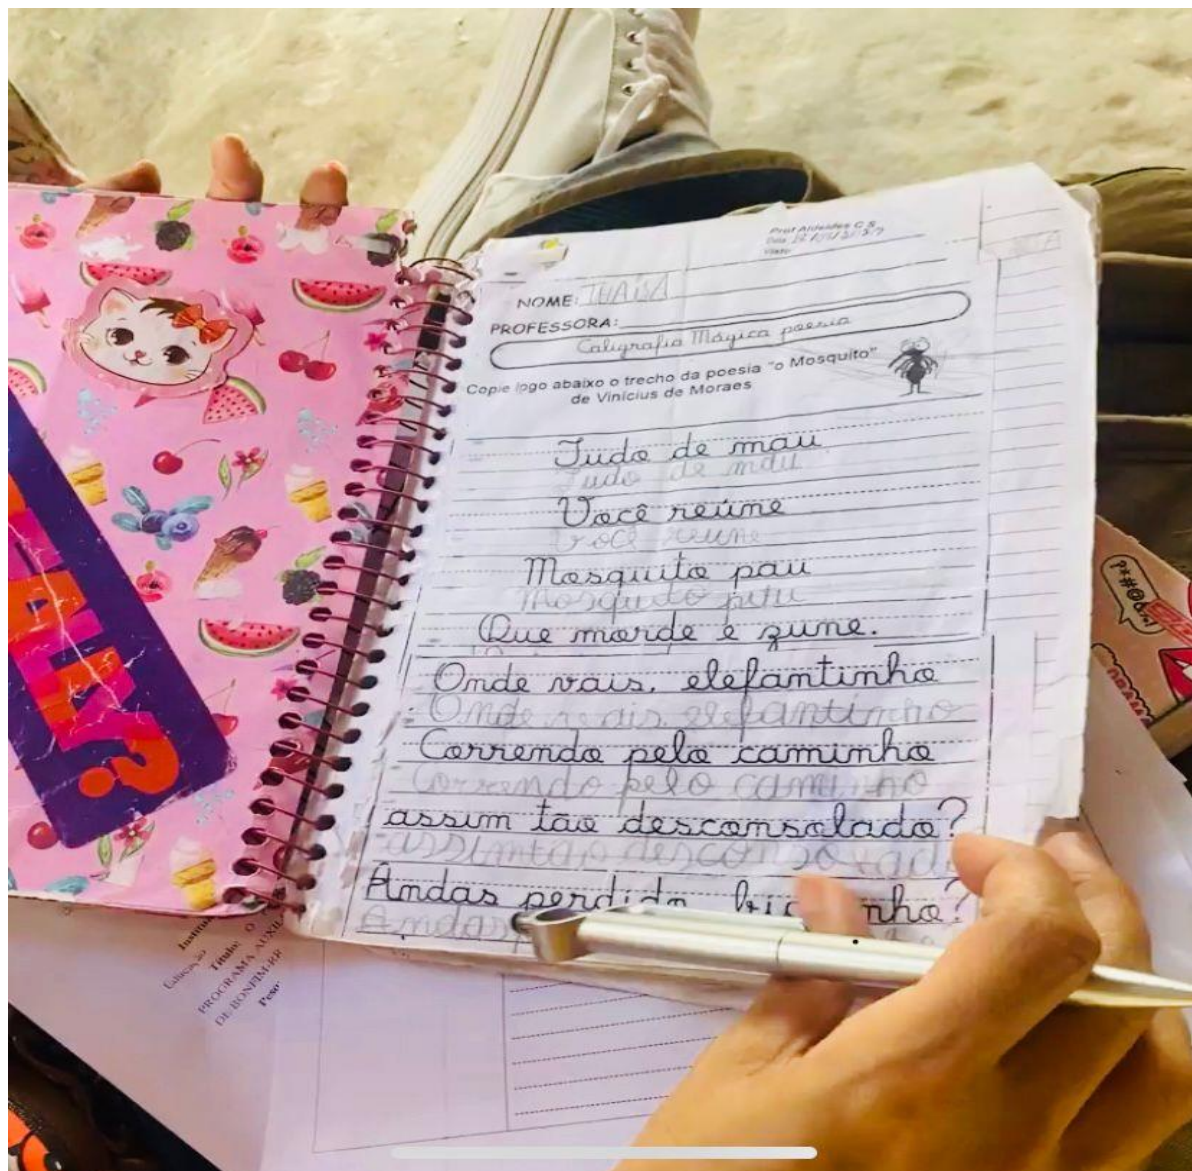 Prof Aldeides C S
Data
Visto
NOME: THAISA
PROFESSORA:
Caligrafia Mágica poesia
Copie logo abaixo o trecho da poesia "o Mosquito"
de Vinícius de Moraes
Tudo de mau
Tudo de mau
Você reúne
Você reune
Mosquito pau
Mosquito pau
Que morde e zune.
Onde vais, elefantinho
Onde vais, elefantinho
Correndo pelo caminho
Correndo pelo caminho
assim tão desconsolado?
assim tão desconsolad
Andas perdido, bic nho?
Andas
P*#@&!
Título: O
Educação
PROGRAMA AUXIL
DE BONFIM-RR